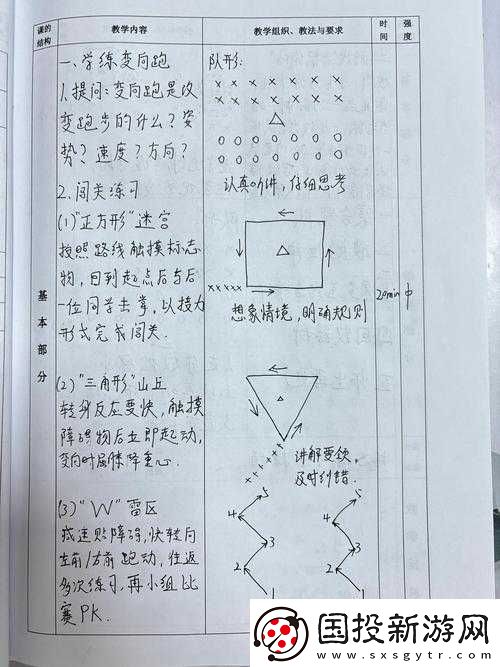 课的结构
教学内容
教学组织、教法与要求
时间
强度
基本部分
一、学练变向跑
1.提问:变向跑是改
变跑步的什么?姿
势?速度?方向?
2.闯关练习
(1)"正方形"迷宫
按照路线触摸标志
物,回到起点后与后
一位同学击掌,以接力
形式完成闯关.
(2)"三角形"山丘
转身反应要快,触摸
障碍物后立即起动,
变向时屈膝降重心.
(3)"W"雷区
减速贴障碍,快转向
左前/右前跑动,往返
多次练习,再小组比
赛PK.
队形:
× × × × × × ×
× × × × × × ×
认真听讲,仔细思考
×××××
想象情境,明确规则
××××××
讲解要领,
及时纠错.
5
4
3
2
1
5
4
3
2
1
20min
中
国投新游网
www.sxsgytr.com